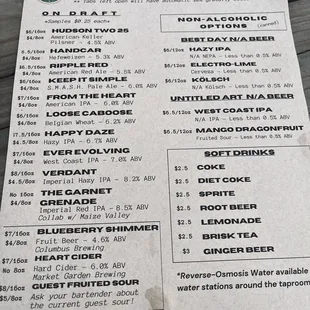 ON DRAFT
*Samples $0.25 each*
$6/16oz HUDSON TWO 25
$4/8oz American Keller
Pilsner - 4.5% ABV
HANDCAR
$4/8oz Hefeweizen - 5.3% ABV
$6.5/16oz RIPPLE RED
$4/8oz American Red Ale - 5.5% ABV
$6/16oz KEEP IT SIMPLE
$4/8oz S.M.A.S.H. Pale Ale - 6.0% ABV
$7/16oz FROM THE HEART
$4/8oz American IPA - 6.0% ABV
$6/16oz LOOSE CABOOSE
$4/8oz Belgian Wheat - 6.2% ABV
$7.5/16oz HAPPY DAZE
$4.5/8oz Hazy IPA - 8.2% ABV
$7/16oz EVER EVOLVING
$4/8oz West Coast IPA - 7.0% ABV
$8/16oz VERDANT
$4.5/8oz Imperial Hazy IPA - 8.2% ABV
No 16oz THE GARNET
$4/8oz GRENADE
Imperial Red IPA - 8.5% ABV
Collab w/ Maize Valley
$7/16oz BLUEBERRY SHIMMER
$4/8oz Fruit Beer - 4.6% ABV
Columbus Brewing
$7/16oz HEART CIDER
No 8oz Hard Cider - 6.0% ABV
Market Garden Brewing
$8/16oz GUEST FRUITED SOUR
$5/8oz Ask your bartender about
the current guest sour!
NON-ALCOHOLIC
OPTIONS (canned)
BEST DAY N/A BEER
$6/12oz HAZY IPA
N/A NEIPA - Less than 0.5% ABV
$6/12oz ELECTRO-LIME
Cerveza - Less than 0.5% ABV
$6/12oz KÖLSCH
N/A Kölsch - Less than 0.5% ABV
UNTITLED ART N/A BEER
$6.5/12oz WEST COAST IPA
IPA - Less than 0.5% ABV
$6.5/12oz MANGO DRAGONFRUIT
Fruited Sour - Less than 0.5% ABV
SOFT DRINKS
$2.5 COKE
$2.5 DIET COKE
$2.5 SPRITE
$2.5 ROOT BEER
$2.5 LEMONADE
$2.5 BRISK TEA
$3 GINGER BEER
*Reverse-Osmosis Water available
water stations around the taproom